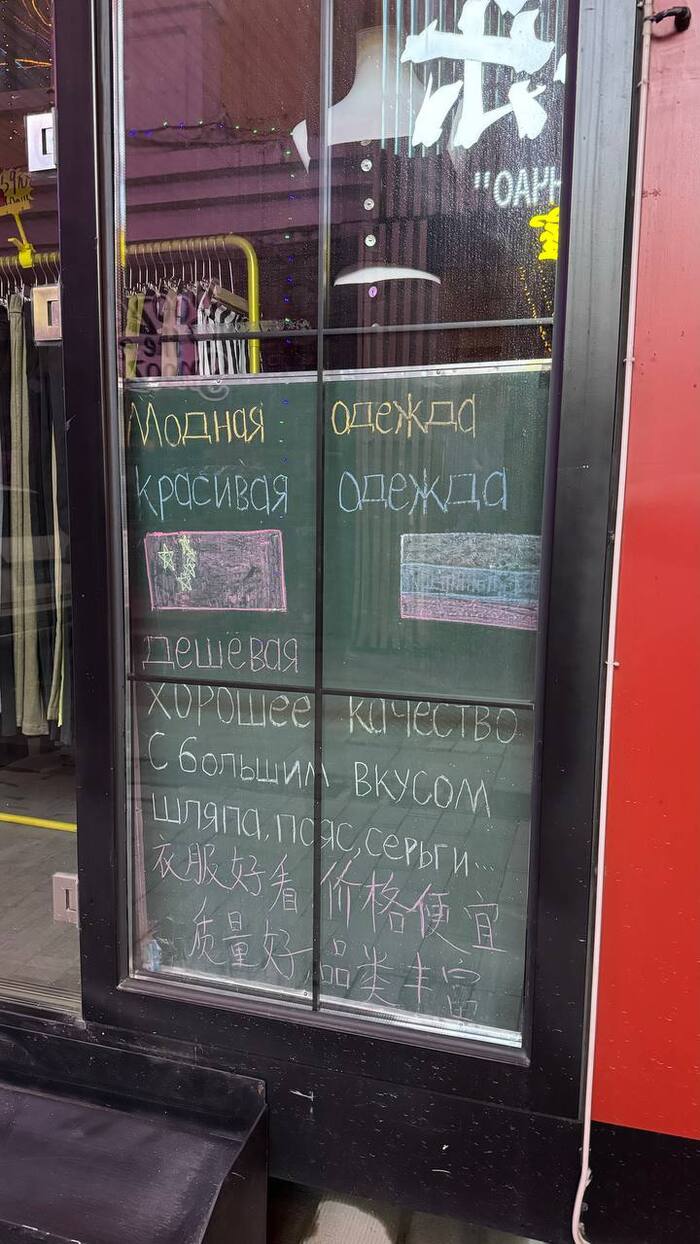 Модная одежда
красивая одежда
дешёвая
хорошее качество
С большим вкусом
шляпа, пояс, серьги...
衣服好看 价格便宜
质量好 品类丰富